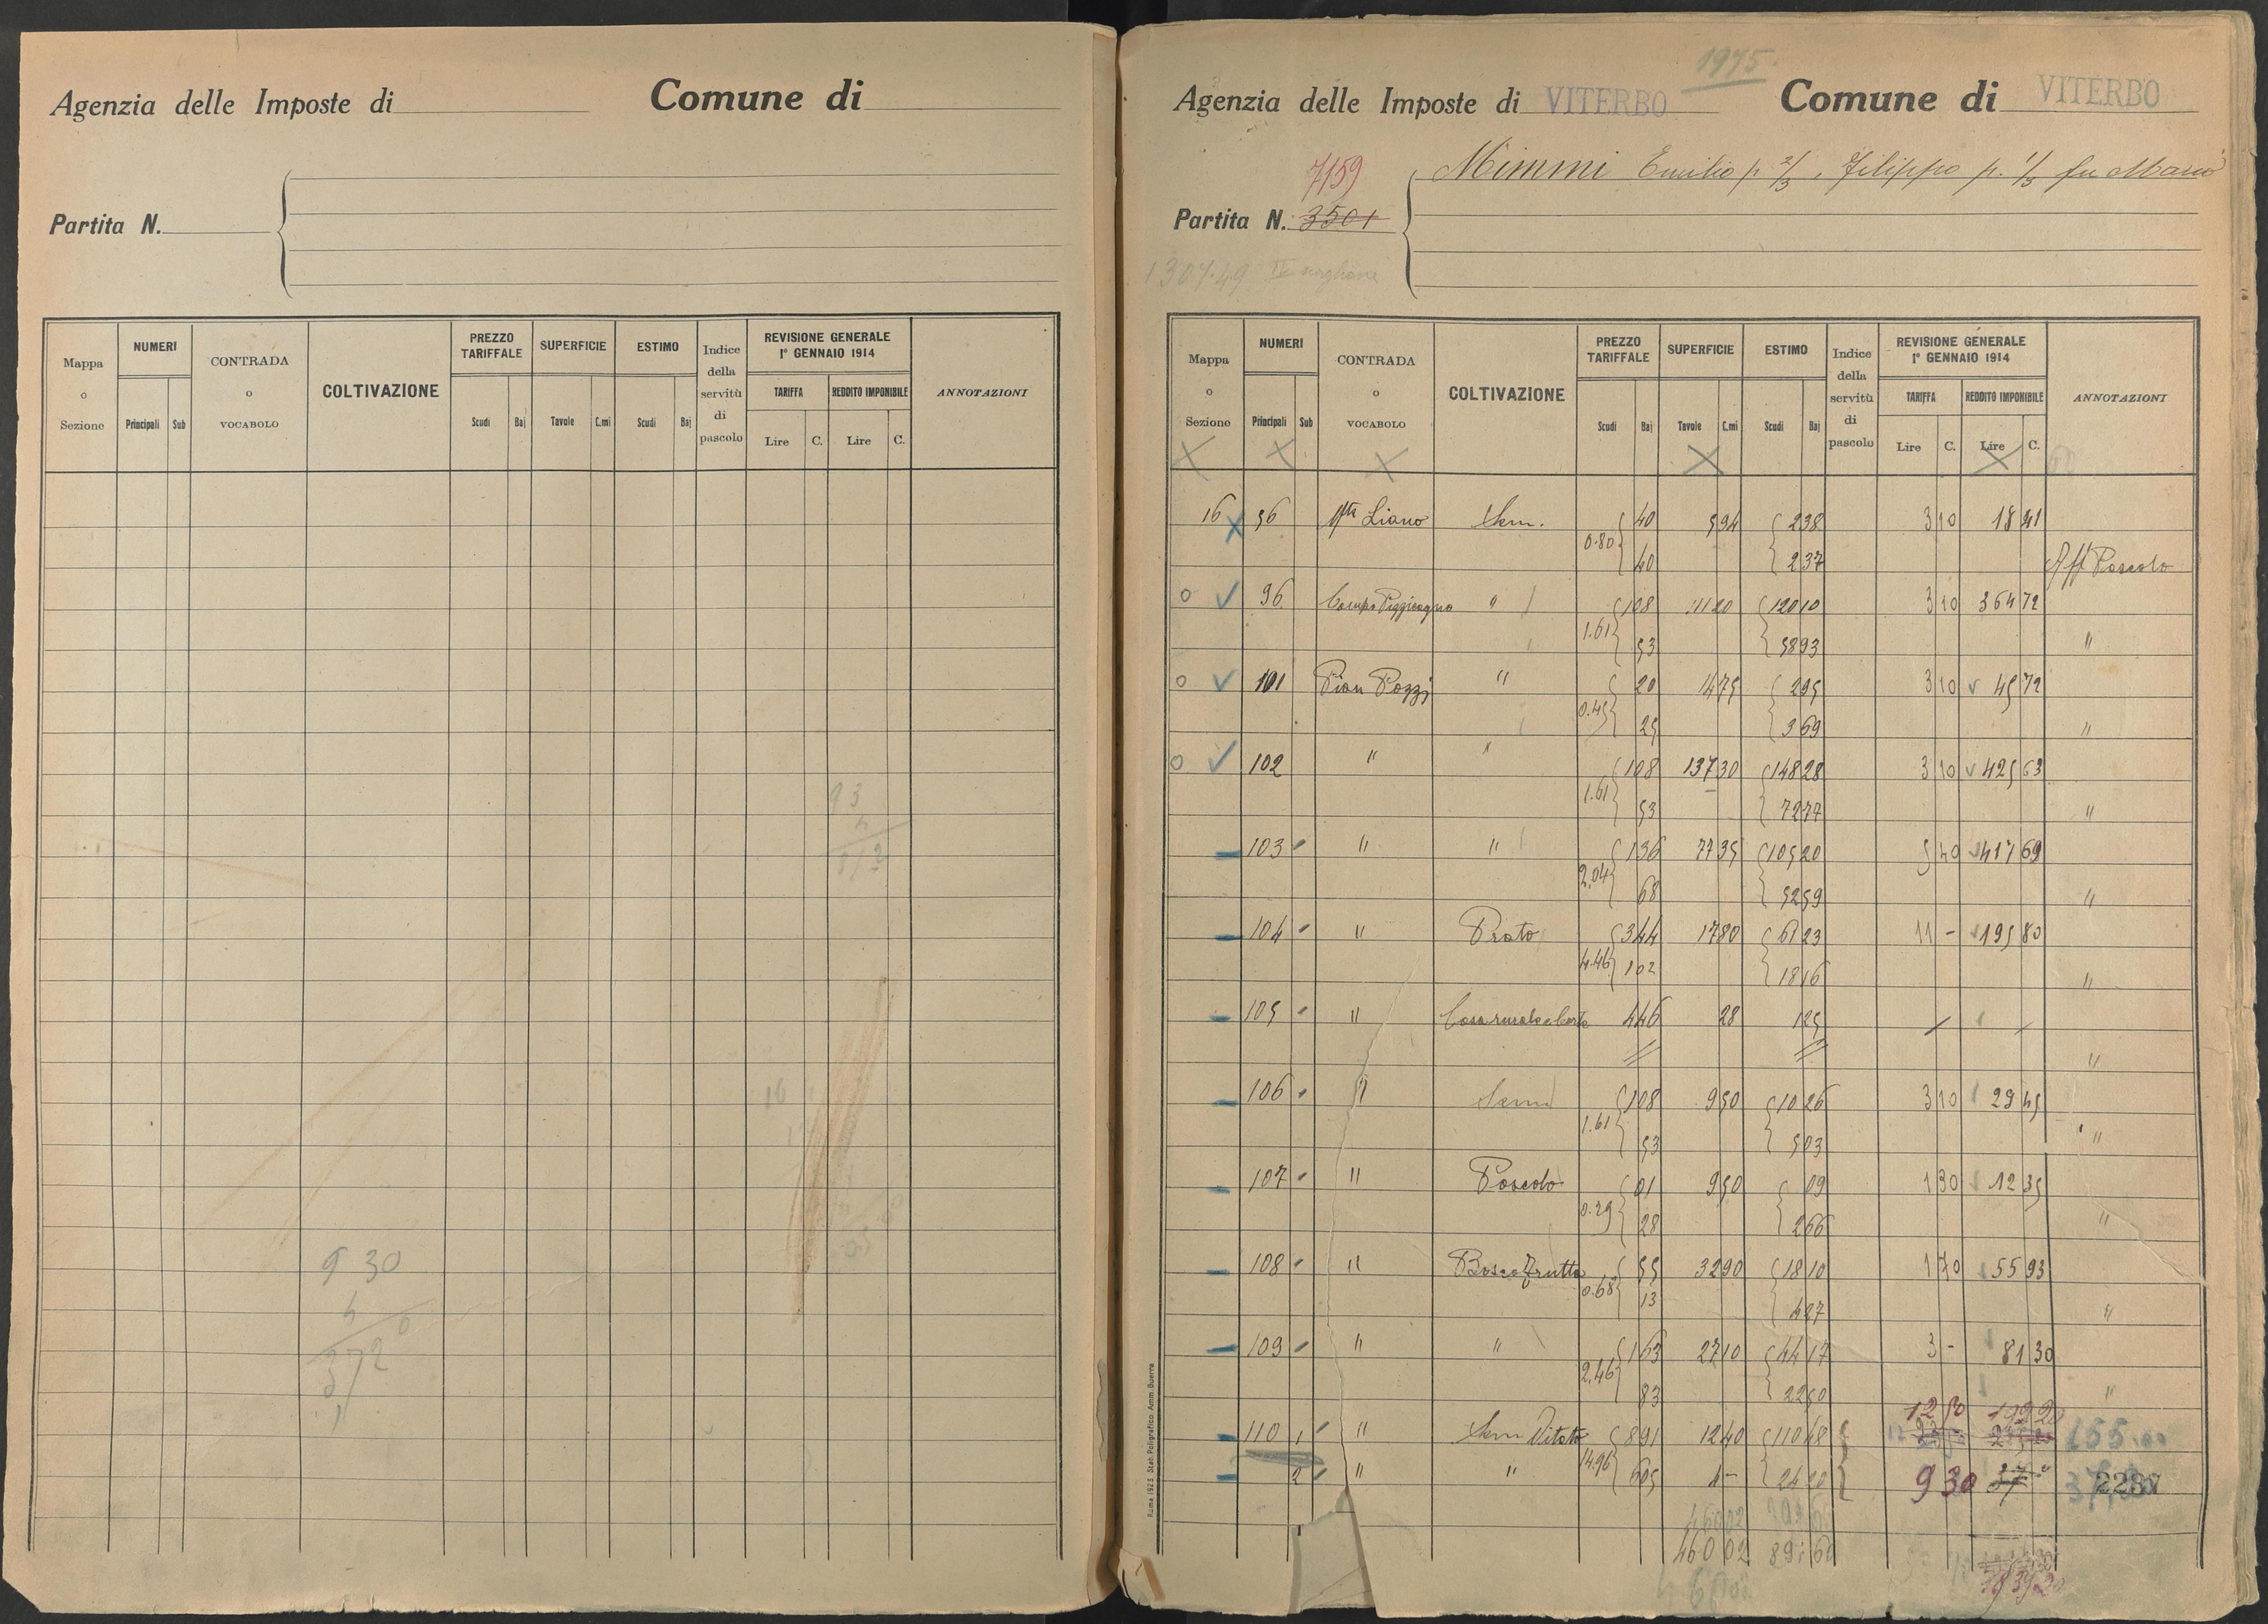 Agenzia delle Imposte di
Comune di
Partita N.
Mappa o Sezione
NUMERI
Principali
Sub
CONTRADA o VOCABOLO
COLTIVAZIONE
PREZZO TARIFFALE
Scudi
Baj
SUPERFICIE
Tavole
C.mi
ESTIMO
Scudi
Baj
Indice della servitù di pascolo
REVISIONE GENERALE
1° GENNAIO 1914
TARIFFA
REDDITO IMPONIBILE
Lire
C.
Lire
C.
ANNOTAZIONI
93
16
9 30
372
1975
Agenzia delle Imposte di VITERBO
Comune di VITERBO
7159
Partita N. 3501
Mimmi Emilio p. 2/3, Filippo p. 1/3 fu Mario
1307.49
Mappa o Sezione
NUMERI
Principali
Sub
CONTRADA o VOCABOLO
COLTIVAZIONE
PREZZO TARIFFALE
Scudi
Baj
SUPERFICIE
Tavole
C.mi
ESTIMO
Scudi
Baj
Indice della servitù di pascolo
REVISIONE GENERALE
1° GENNAIO 1914
TARIFFA
REDDITO IMPONIBILE
Lire
C.
Lire
C.
ANNOTAZIONI
16 56 Liano Sem. 40 594 238 3 10 18 41
0.80 40 237 Aff Pascolo
96 " 108 1120 120 10 3 10 364 72
1.61 53 58 93 "
101 Pian Pozzi " 20 14 75 2 95 3 10 45 72
0.45 25 3 69 "
102 " " 108 137 30 148 28 3 10 425 63
1.61 53 72 77 "
103 " " 136 77 35 105 20 5 40 417 69
2.04 68 52 59 "
104 " Prato 344 17 80 61 23 11 - 195 80
4.46 102 18 16 "
105 " Casa rurale e Corte 446 28 1 25
"
106 " Sem 108 9 50 10 26 3 10 29 45
1.61 53 5 03 "
107 " Pascolo 01 9 50 09 1 30 12 35
0.29 28 2 66 "
108 " Bosco frutto 55 32 90 18 10 1 70 55 93
0.68 13 4 27 "
109 " " 163 27 10 44 17 3 - 81 30
2.46 83 22 50 "
12 50
110 1 " Sem Vitato 891 12 40 110 48 155
14.96
2 " " 605 4 - 24 20 9 30 37 2237
460 02
460 02 891 60
Roma 1925. Stab. Poligrafico Amm. Guerra